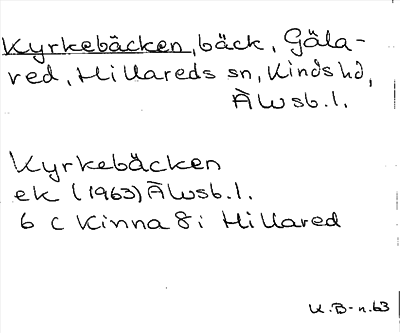 Kyrkebäcken, bäck, Gäla-
red, Hillareds sn, Kinds hd,
Älvsb.l.
Kyrkebäcken
ek (1963) Älvsb.l.
6 c Kinna 8 i Hillared
K.B-n.63